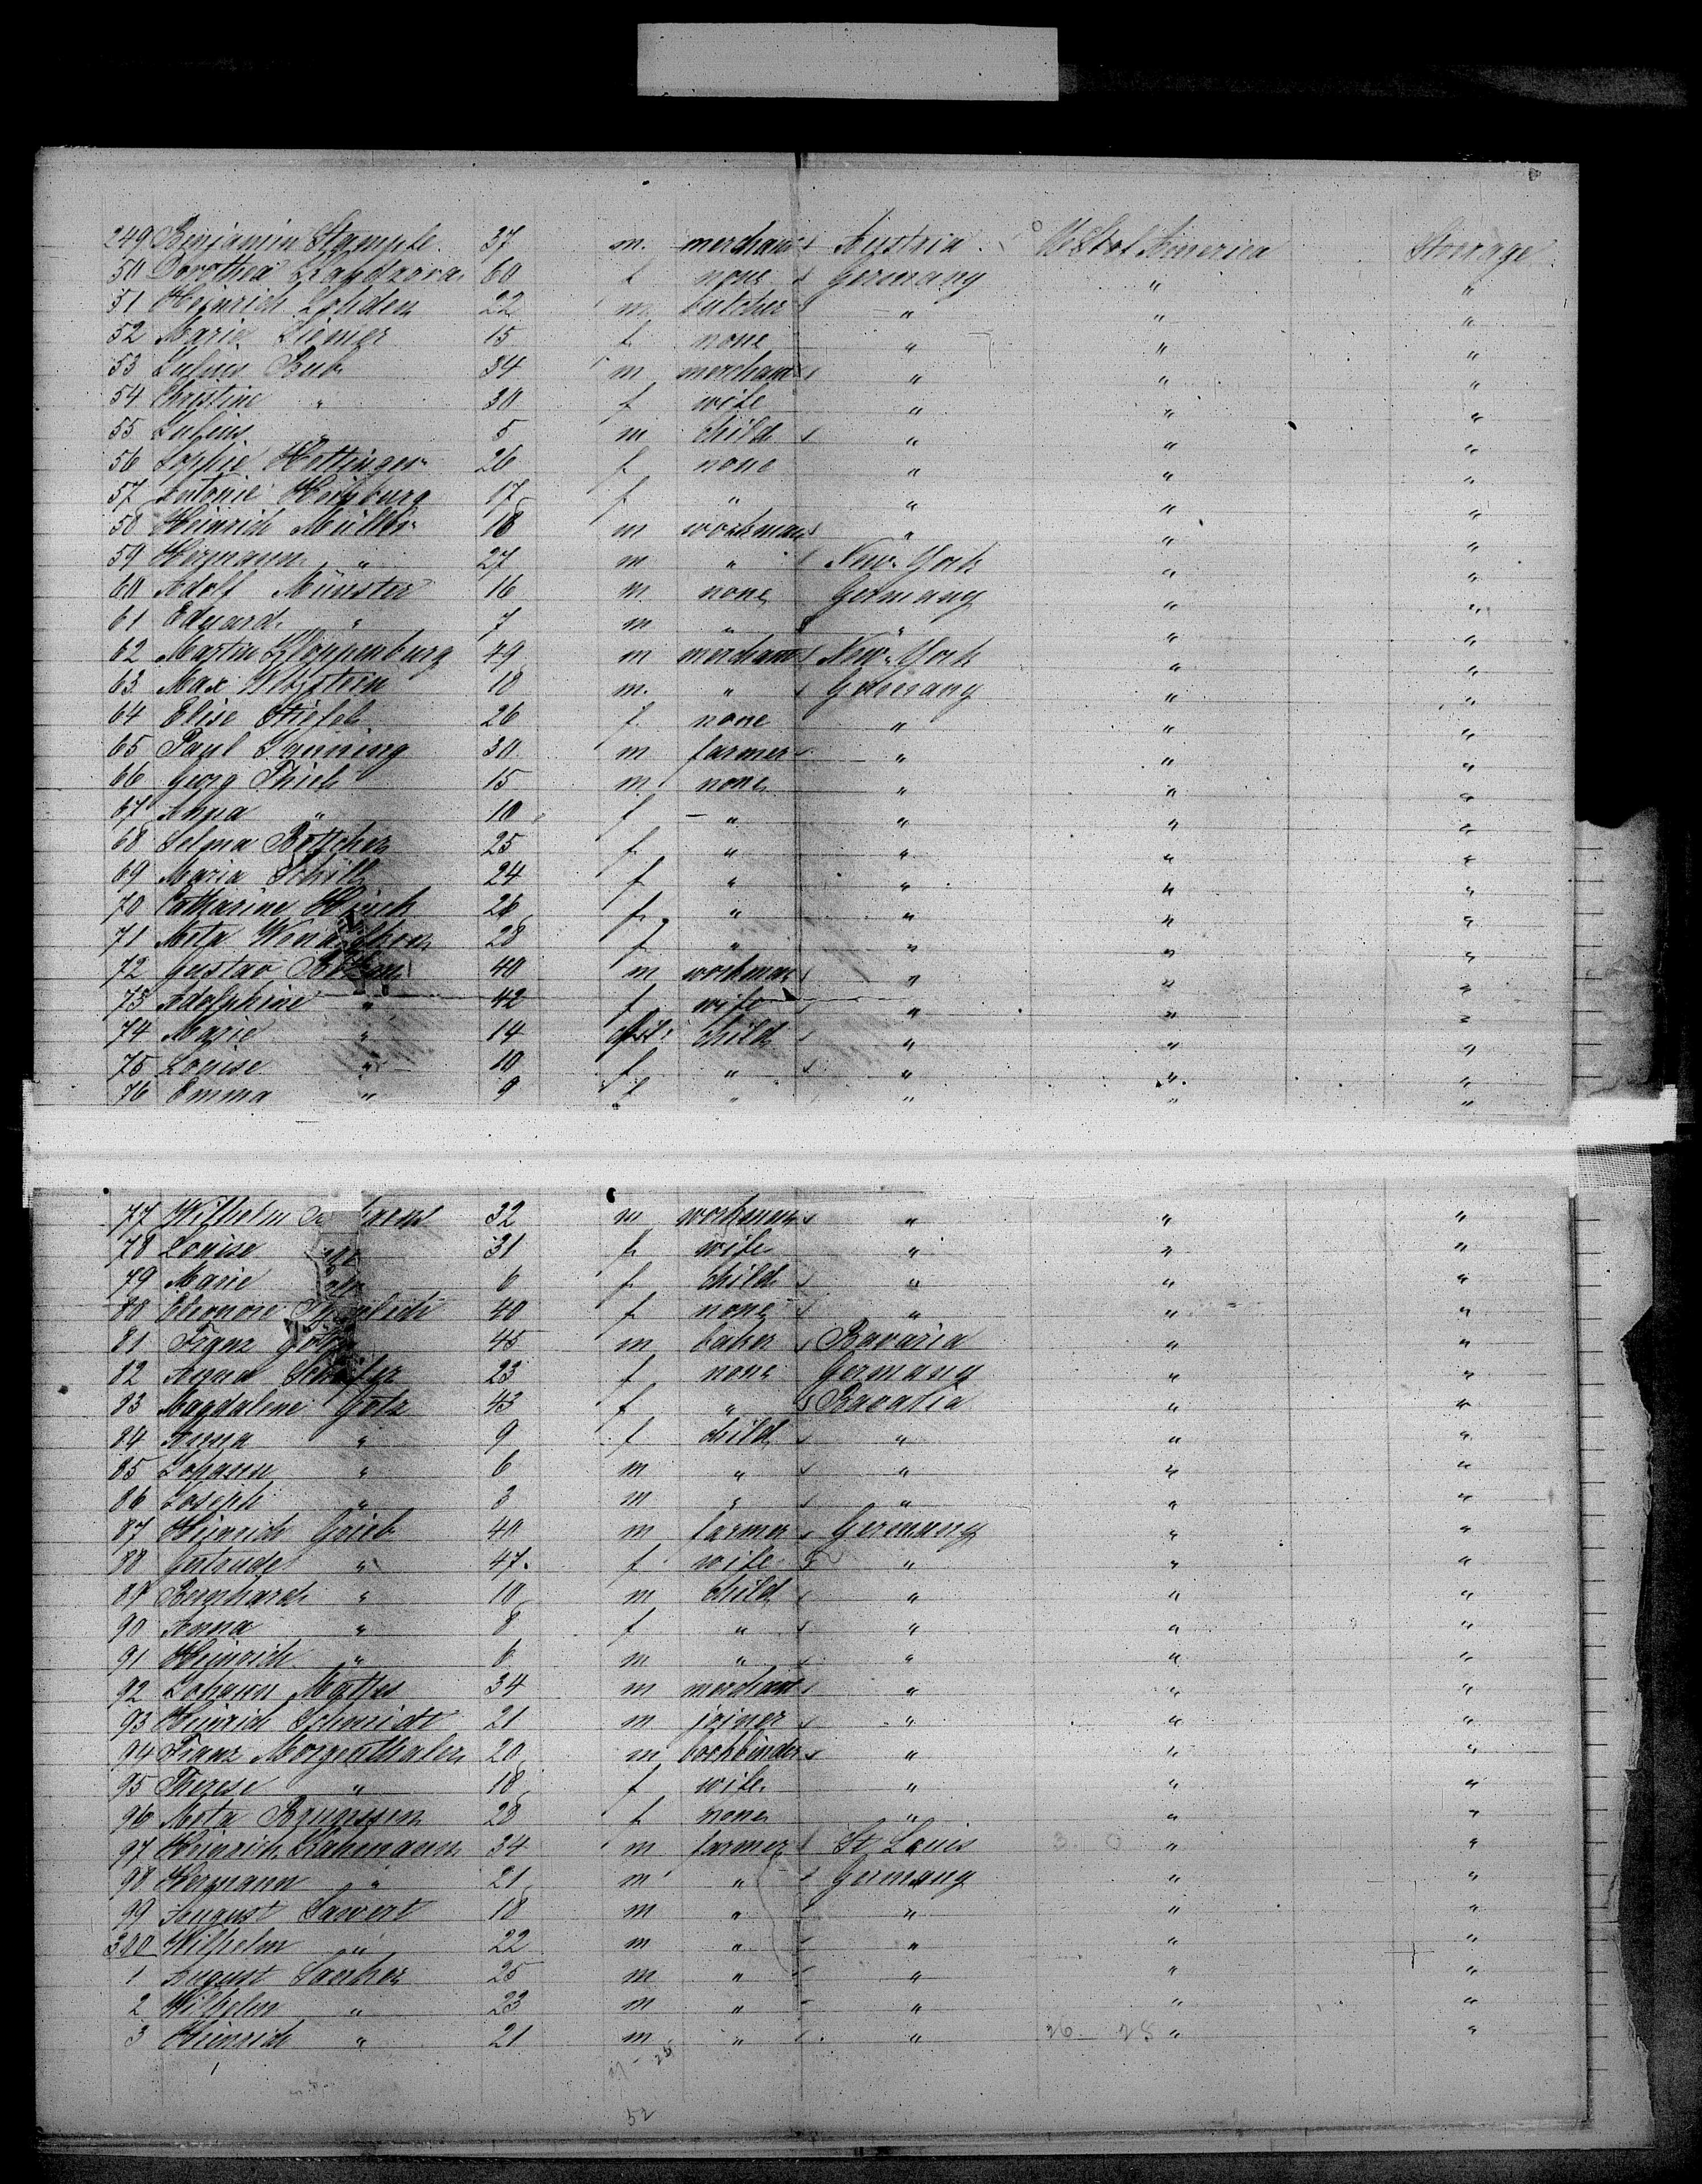 249 Benjamin Stample. 37 m. merchant Austria. U St of America Steerage
50 Dorothea 60 f none Germany " "
51 Heinrich Lohden 22 m butcher " " "
52 Marie Siemer 15 f none " " "
53 Julius Bub 34 m merchant " " "
54 Christine " 30 f wife " " "
55 Julius " 5 m child " " "
56 Sophie Hettinger 26 f none " " "
57 Antonie Heinburg 17 f " " " "
58 Heinrich Müller 18 m workman " " "
59 Hermann " 27 m " New-York " "
60 Adolf Münster 16 m none Germany " "
61 Eduard " 7 m " " " "
62 Martin Kloppenburg 49 m merchant New-York " "
63 Max 18 m. " Germany " "
64 Elise Stiefel 26 f none " " "
65 Paul 30 m farmer " " "
66 Georg Thiele 15 m none " " "
67 Anna " 10 f " " " "
68 Selma Böttcher 25 f " " " "
69 Maria Scholl 24 f " " " "
70 Catharine 26 f " " " "
71 Meta 28 f " " " "
72 Gustav 40 m workman " " "
73 Adolphine " 42 f wife " " "
74 Marie " 14 child " " "
75 Louise " 10 f " " " "
76 Emma " 9 f " " " "
77 Wilhelm 32 m workman " " "
78 Louise 31 f wife " " "
79 Marie 6 f child " " "
80 Eleonore 40 f none " " "
81 Franz Götz 45 m baker Bavaria " "
82 Anna Schäfer 23 f none Germany " "
83 Magdalene Götz 43 f " Bavaria " "
84 Anna " 9 f child " " "
85 Johann " 6 m " " " "
86 Joseph " 3 m " " " "
87 Heinrich Grieb 40 m farmer Germany " "
88 Gertrude " 47. f wife " " "
89 Bernhard " 10 m child " " "
90 Anna " 8 f " " " "
91 Heinrich " 6 m " " " "
92 Johann Matthes 34 m merchant " " "
93 Heinrich Schmidt 21 m joiner " " "
94 Franz Morgenthaler 20 m bookbinder " " "
95 Therese " 18 f wife " " "
96 Meta Brunssen 28 f none " " "
97 Heinrich Kahmann 34 m farmer St. Louis 3. 0 " "
98 Hermann " 21 m " Germany " "
99 August Sawert 18 m " " " "
300 Wilhelm " 22 m " " " "
1 August 25 m " " " "
2 Wilhelm " 23 m " " " "
3 Heinrich " 21 m " " 26. 28 " "
52